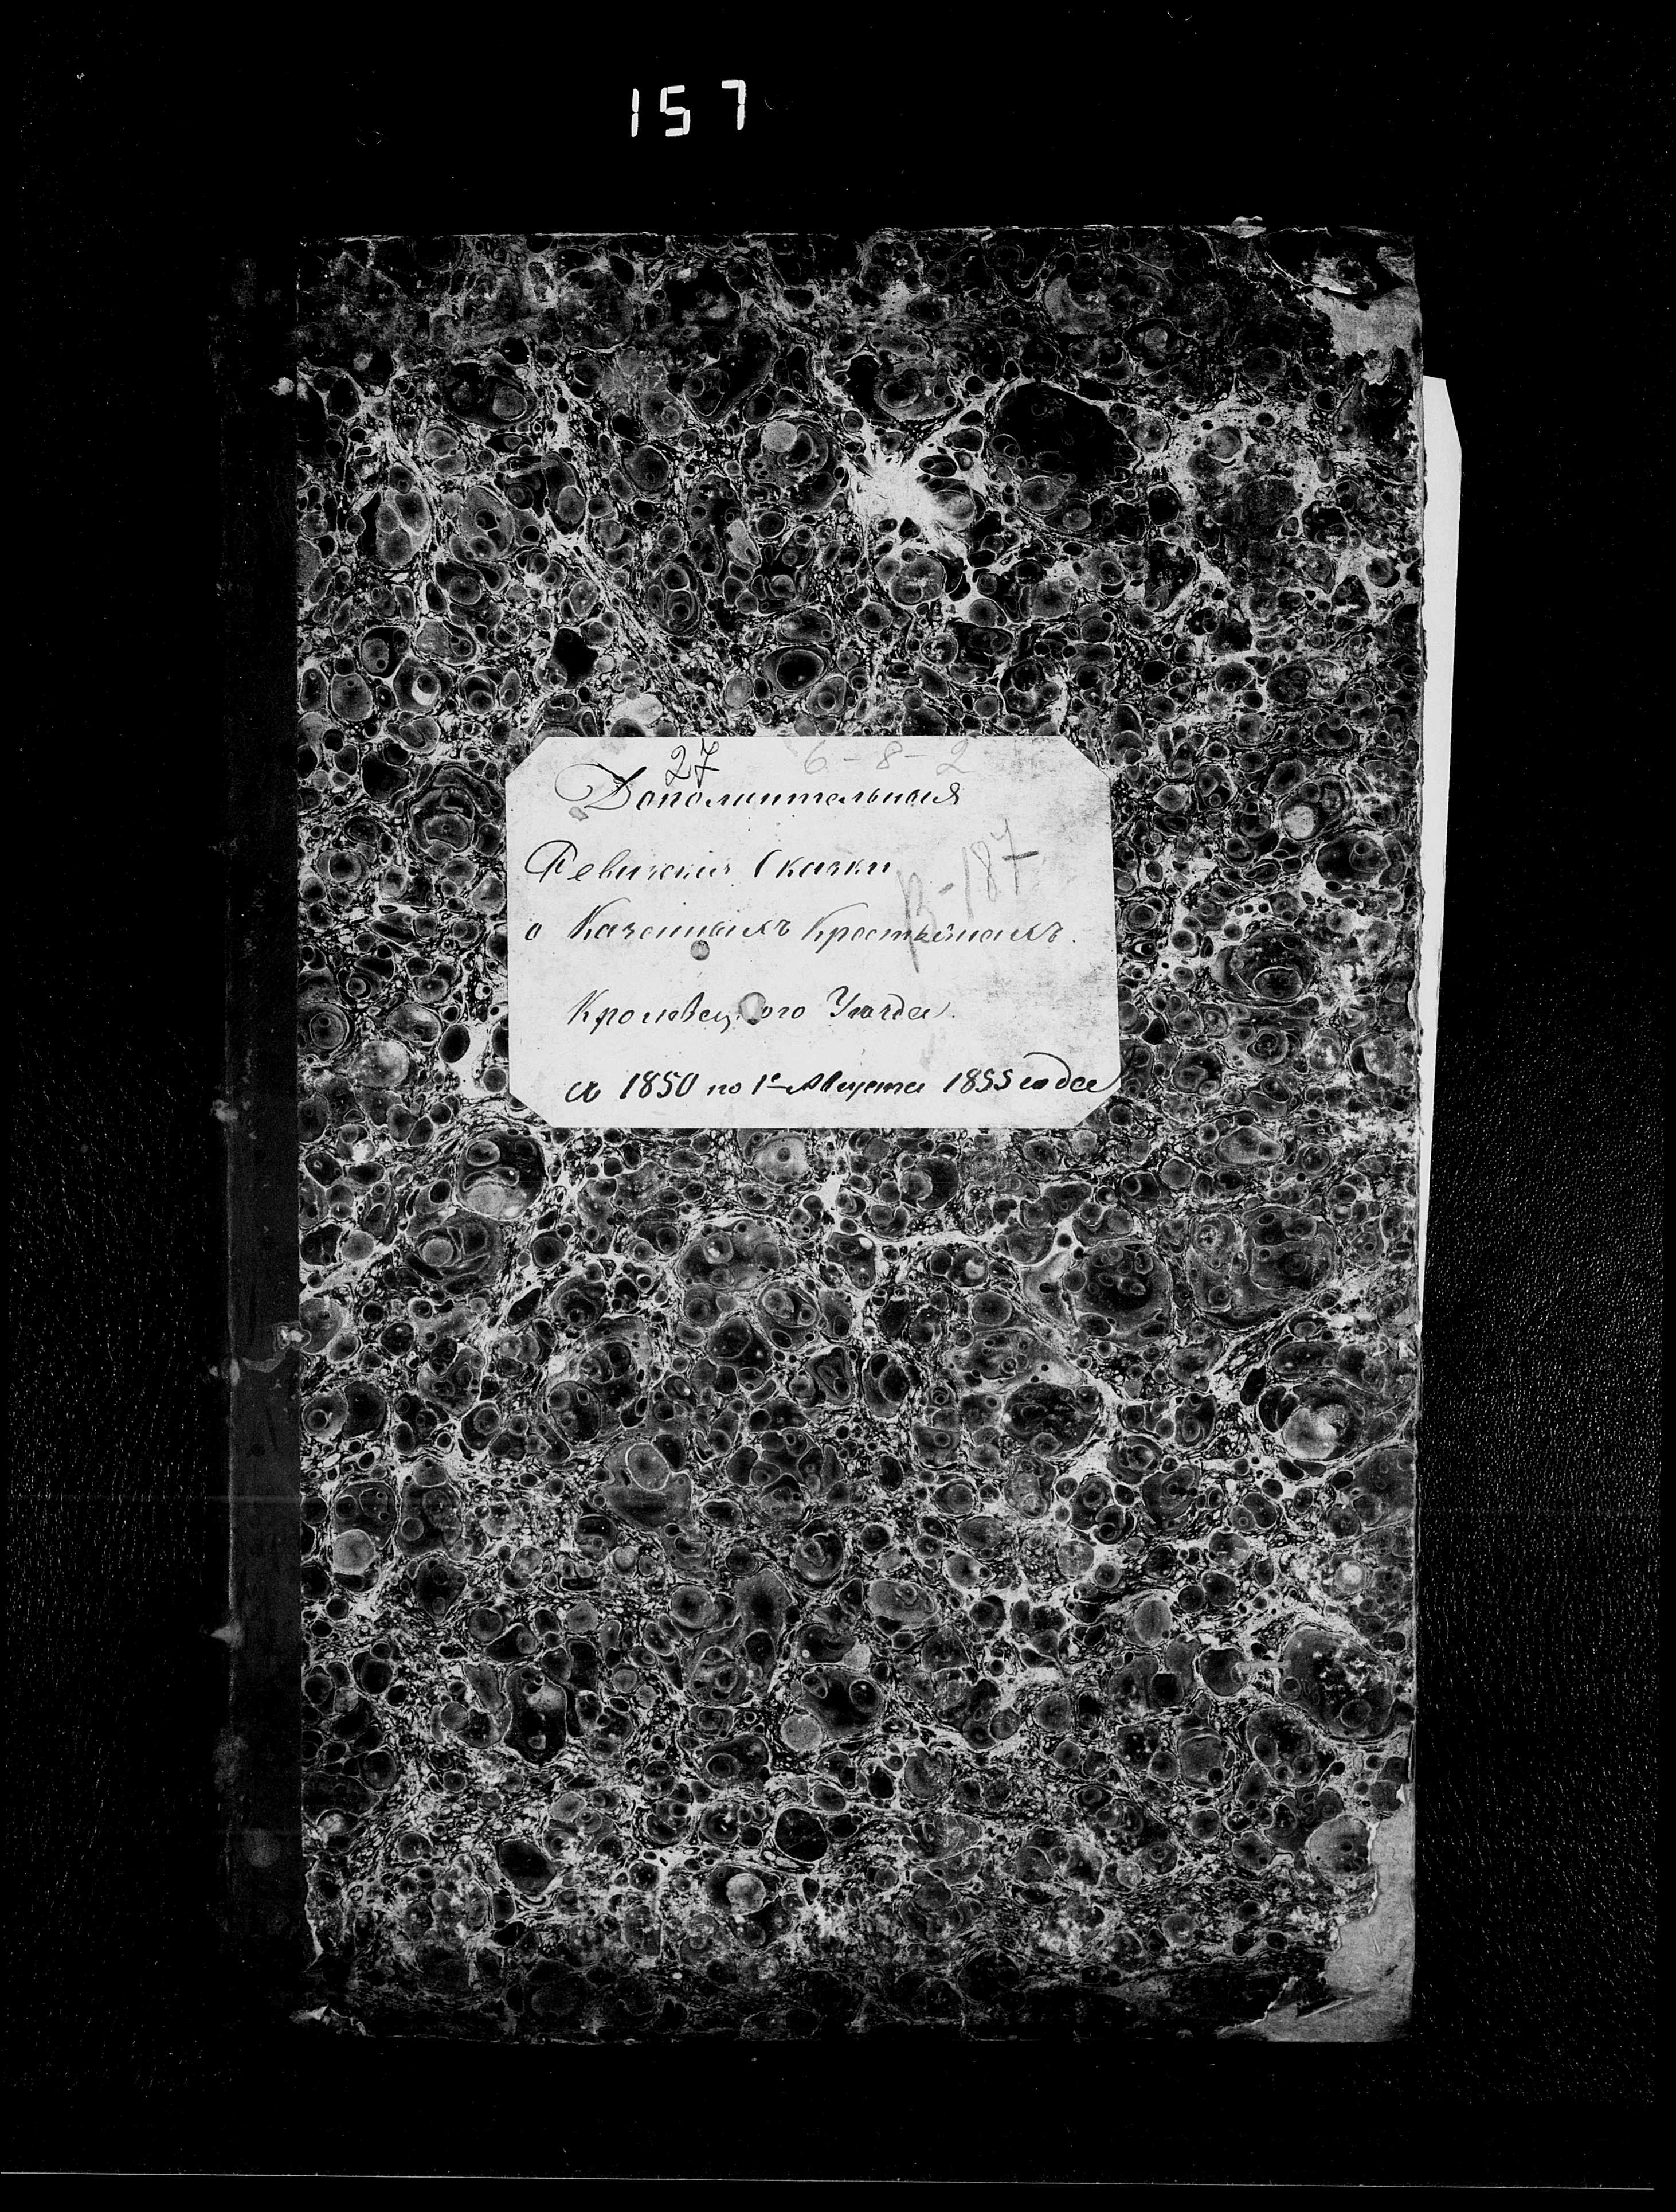 157
27 6-8-2
Дополнительныя
Ревизскія Сказки
В-187
о Казенныхъ Крестьянахъ.
Кролевецкого Уѣзда.
съ 1850 по 1е Августа 1855 года